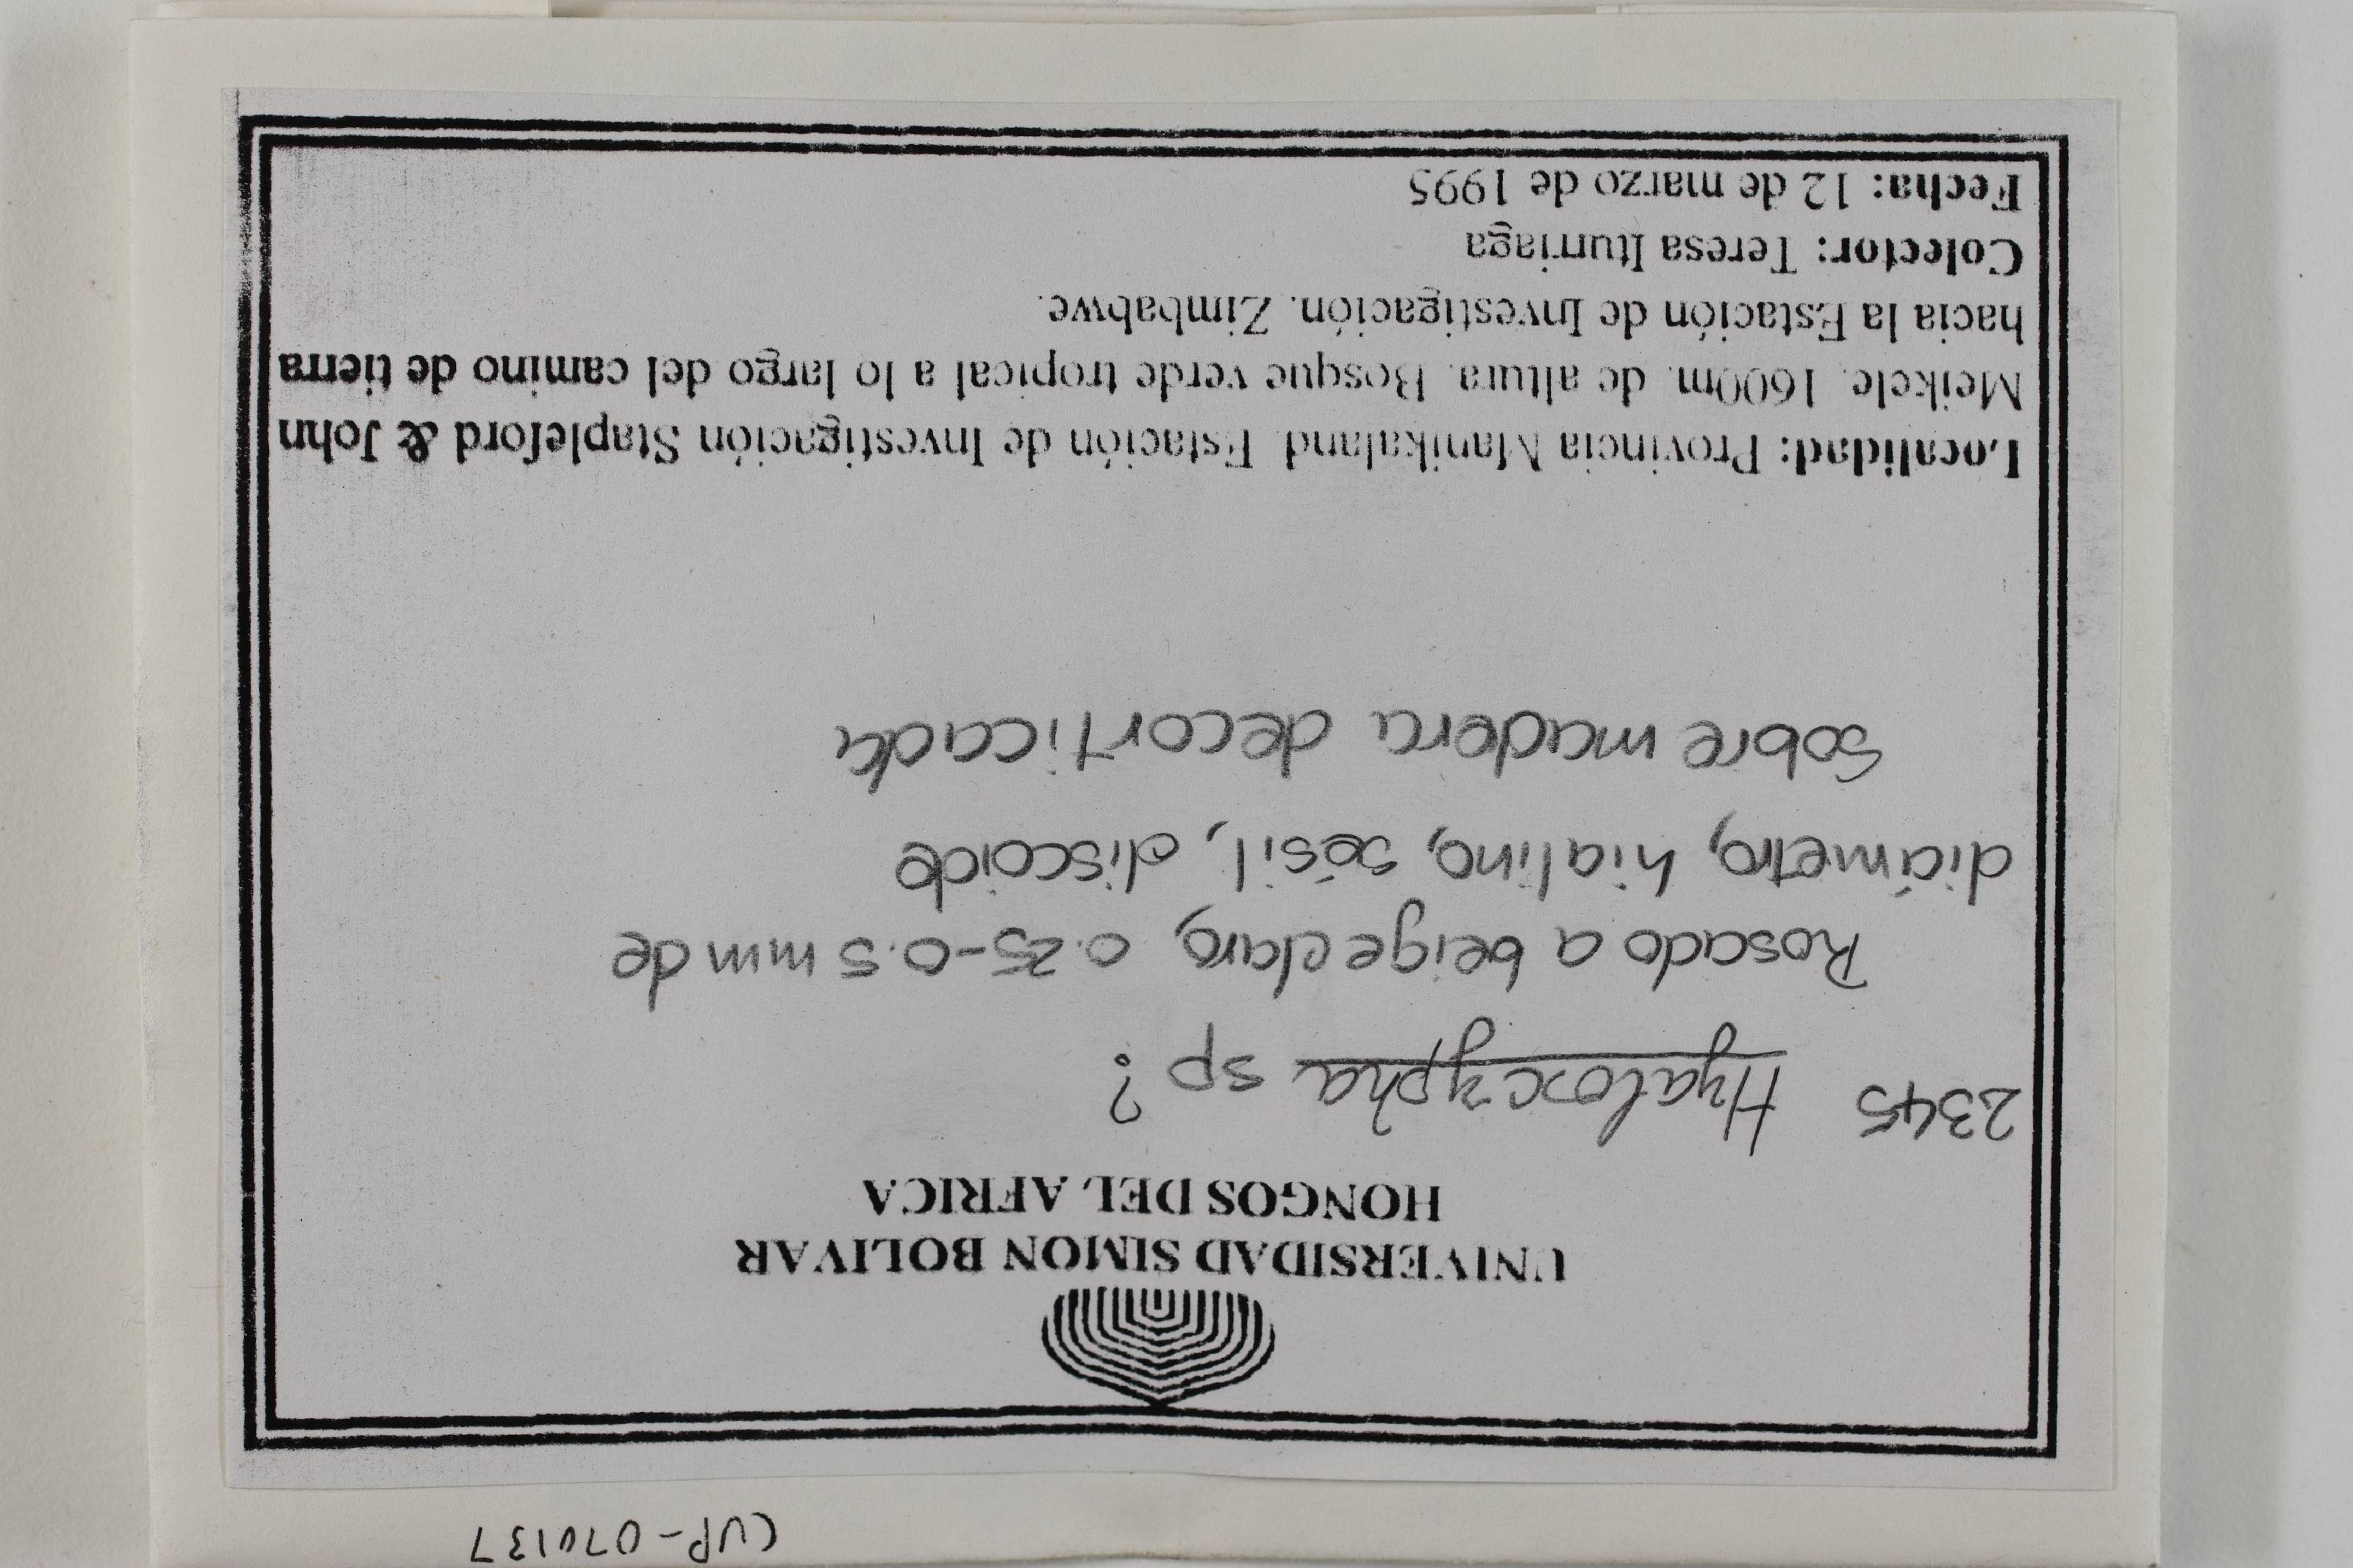 CUP-070137
UNIVERSIDAD SIMON BOLIVAR
HONGOS DEL AFRICA
2345 Hyaloscypha sp?
Rosado a beige claro, 0.25-0.5 mm de
diámetro, hialino, sésil, discoide
Sobre madera decorticada
Localidad: Provincia Manikaland. Estación de Investigación Stapleford & John
Meikele. 1600m. de altura. Bosque verde tropical a lo largo del camino de tierra
hacia la Estación de Investigación. Zimbabwe.
Colector: Teresa Iturriaga
Fecha: 12 de marzo de 1995